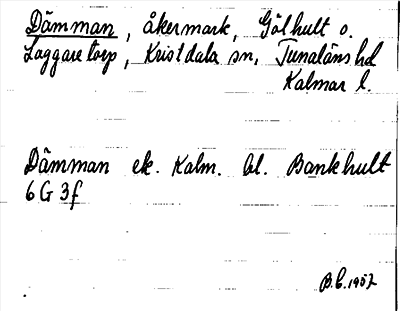 Dämman, åkermark, Gölhult o.
Laggaretorp, Kristdala sn, Tunaläns hd
Kalmar l.
Dämman ek. Kalm. bl. Bankhult
6 G 3 f
B.E. 1957